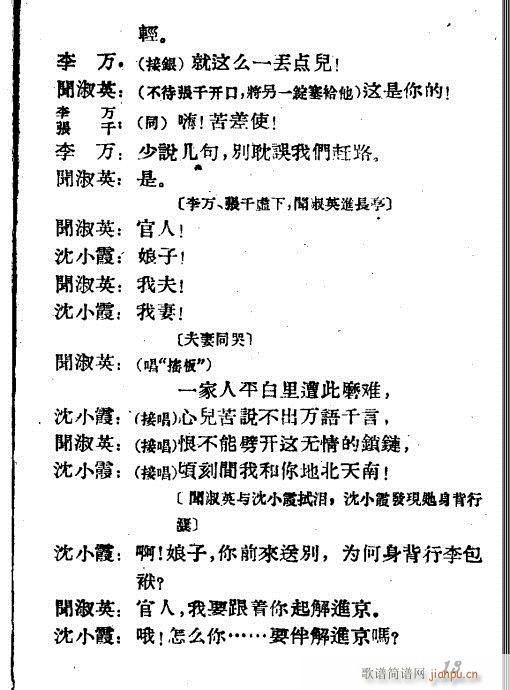 輕。
李　万：（接銀）就这么一丢点兒！
聞淑英：（不待張千开口，將另一錠塞給他）这是你的！
李　万
張　千：（同）嗨！苦差使！
李　万：少說几句，別耽誤我們赶路。
聞淑英：是。
〔李万、張千虛下，聞淑英進長亭〕
聞淑英：官人！
沈小霞：娘子！
聞淑英：我夫！
沈小霞：我妻！
〔夫妻同哭〕
聞淑英：（唱“搖板”）
一家人平白里遭此磨难，
沈小霞：（接唱）心兒苦說不出万語千言，
聞淑英：（接唱）恨不能劈开这无情的鎖鏈，
沈小霞：（接唱）頃刻間我和你地北天南！
〔聞淑英与沈小霞拭泪，沈小霞發現她身背行
沈小霞：啊！娘子，你前來送別，为何身背行李包
袱？
聞淑英：官人，我要跟着你起解進京。
沈小霞：哦！怎么你……要伴解進京嗎？
13
歌谱简谱网
jianpu.cn